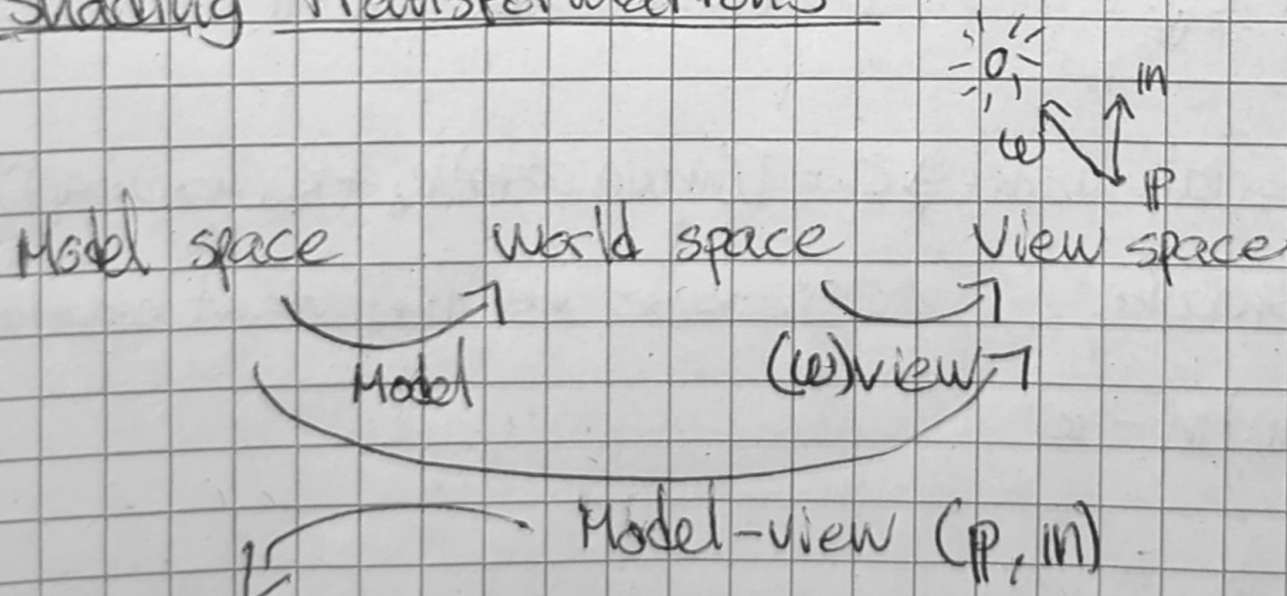 Shading Transformations
n
ω
p
Model space World space View space
Model (ω)view
Model-view (p, n)